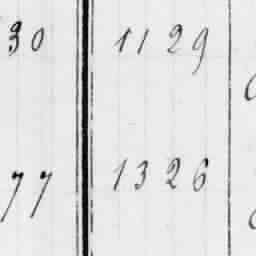 30 1129
77 1326